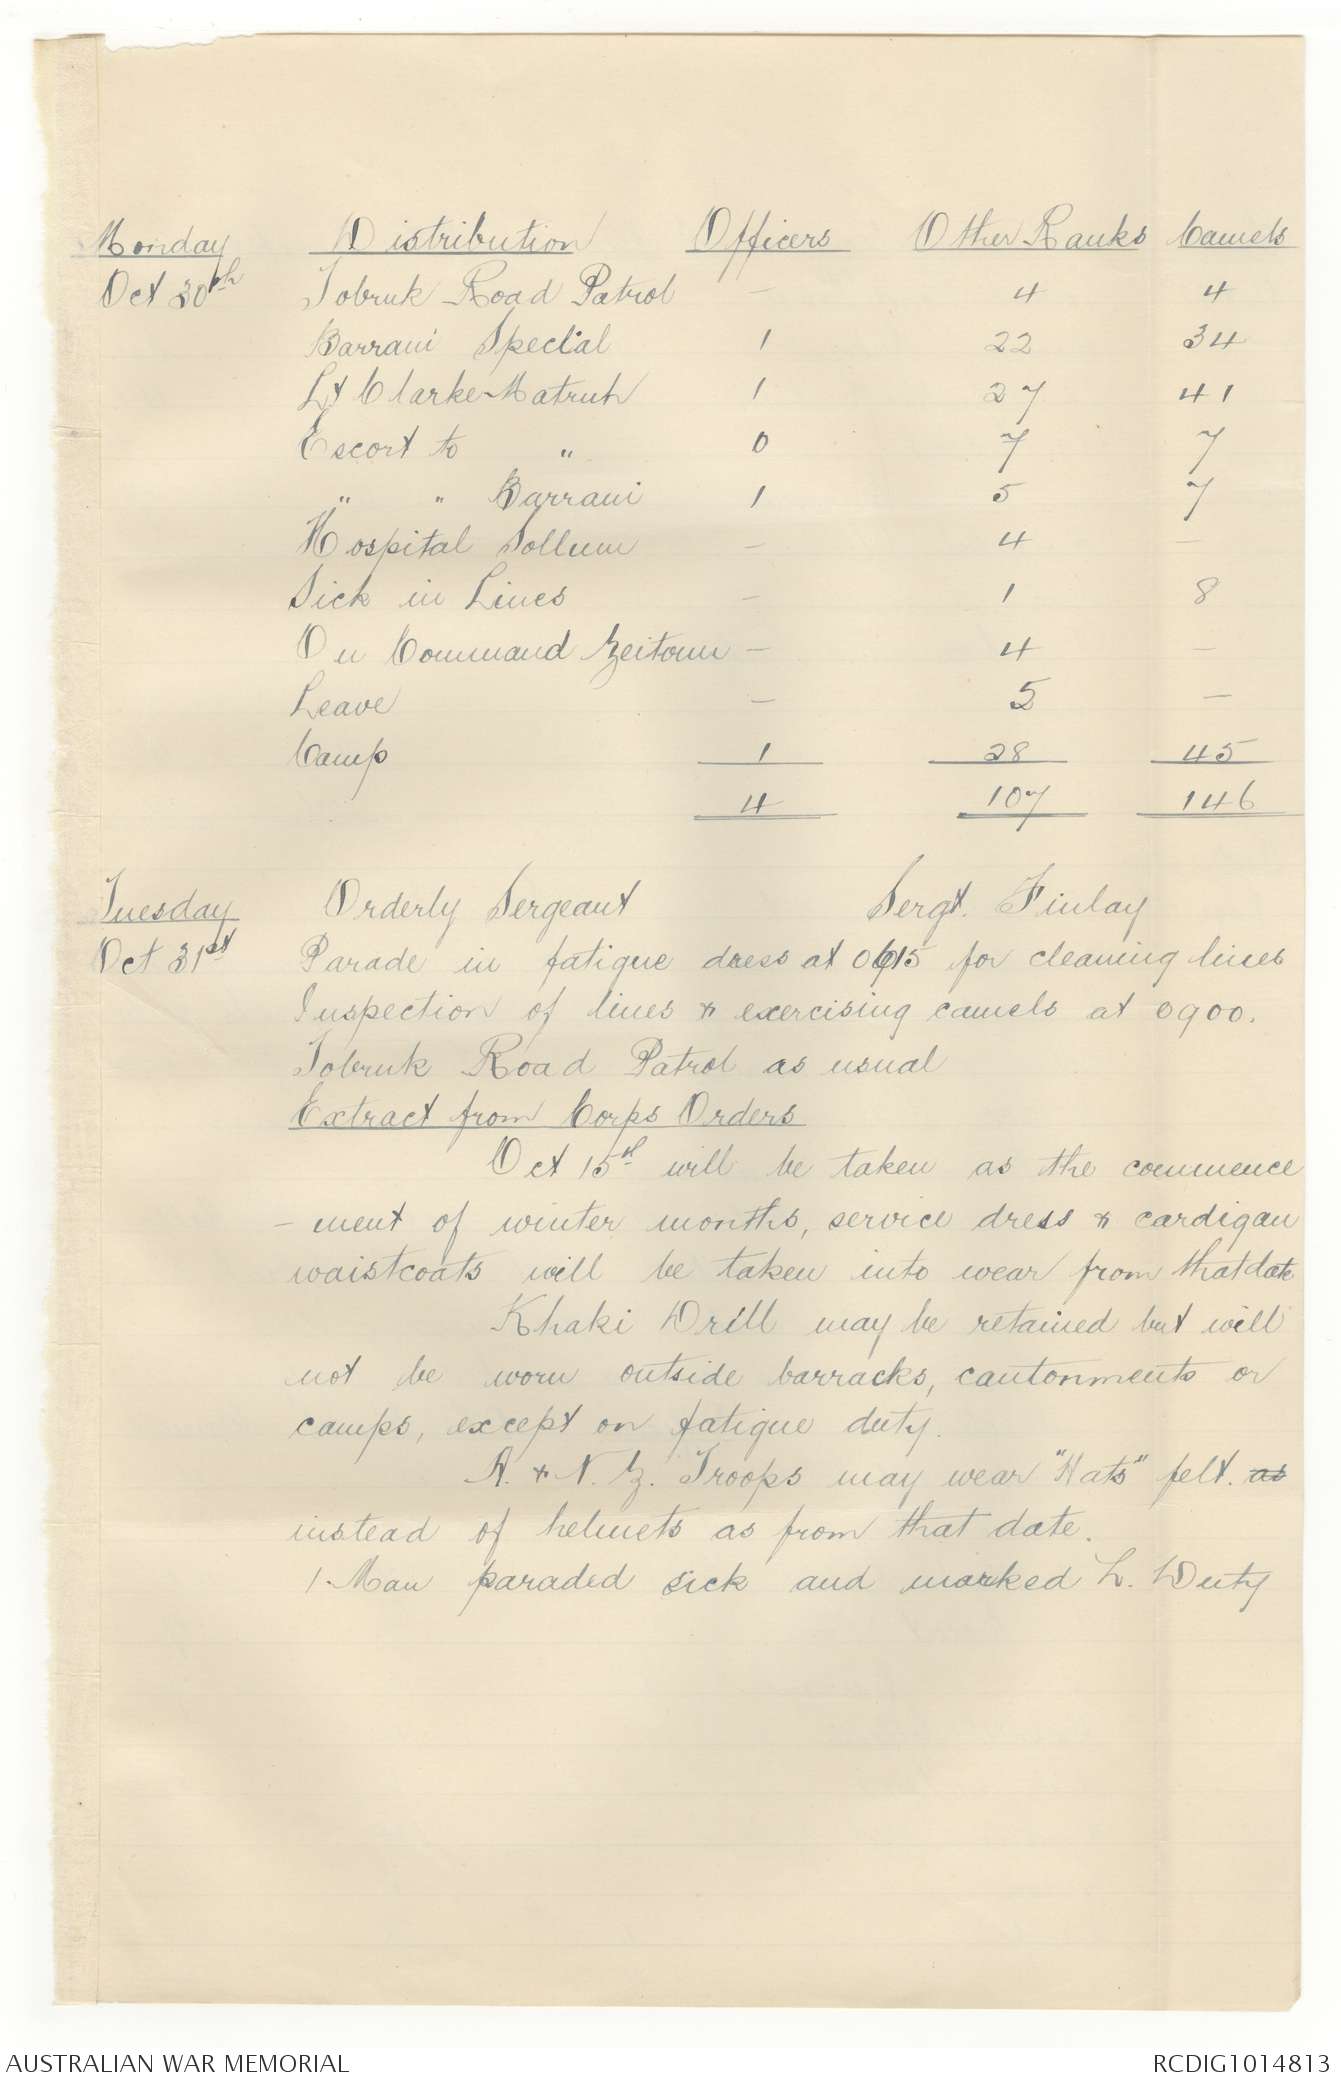 Monday Distribution Officers Other Ranks Camels
Oct 30th Tobruk Road Patrol — 4 4
Barrani Special 1 22 34
Lt Clarke-Matruh 1 27 41
Escort to " 0 7 7
" " Barrani 1 5 7
Hospital Sollum — 4 —
Sick in Lines — 1 8
On Command Zeitoun — 4 —
Leave — 5 —
Camp 1 28 45
4 107 146
Tuesday Orderly Sergeant Sergt. Finlay
Oct 31st Parade in fatigue dress at 0615 for cleaning lines
Inspection of lines & exercising camels at 0900.
Tobruk Road Patrol as usual
Extract from Corps Orders
Oct 15th will be taken as the commence
- ment of winter months, service dress & cardigan
waistcoats will be taken into wear from that date
Khaki Drill may be retained but will
not be worn outside barracks, cantonments or
camps, except on fatigue duty.
A. & N. Z. Troops may wear "Hats" felt. as
instead of helmets as from that date.
1 Man paraded sick and marked L. Duty
AUSTRALIAN WAR MEMORIAL RCDIG1014813